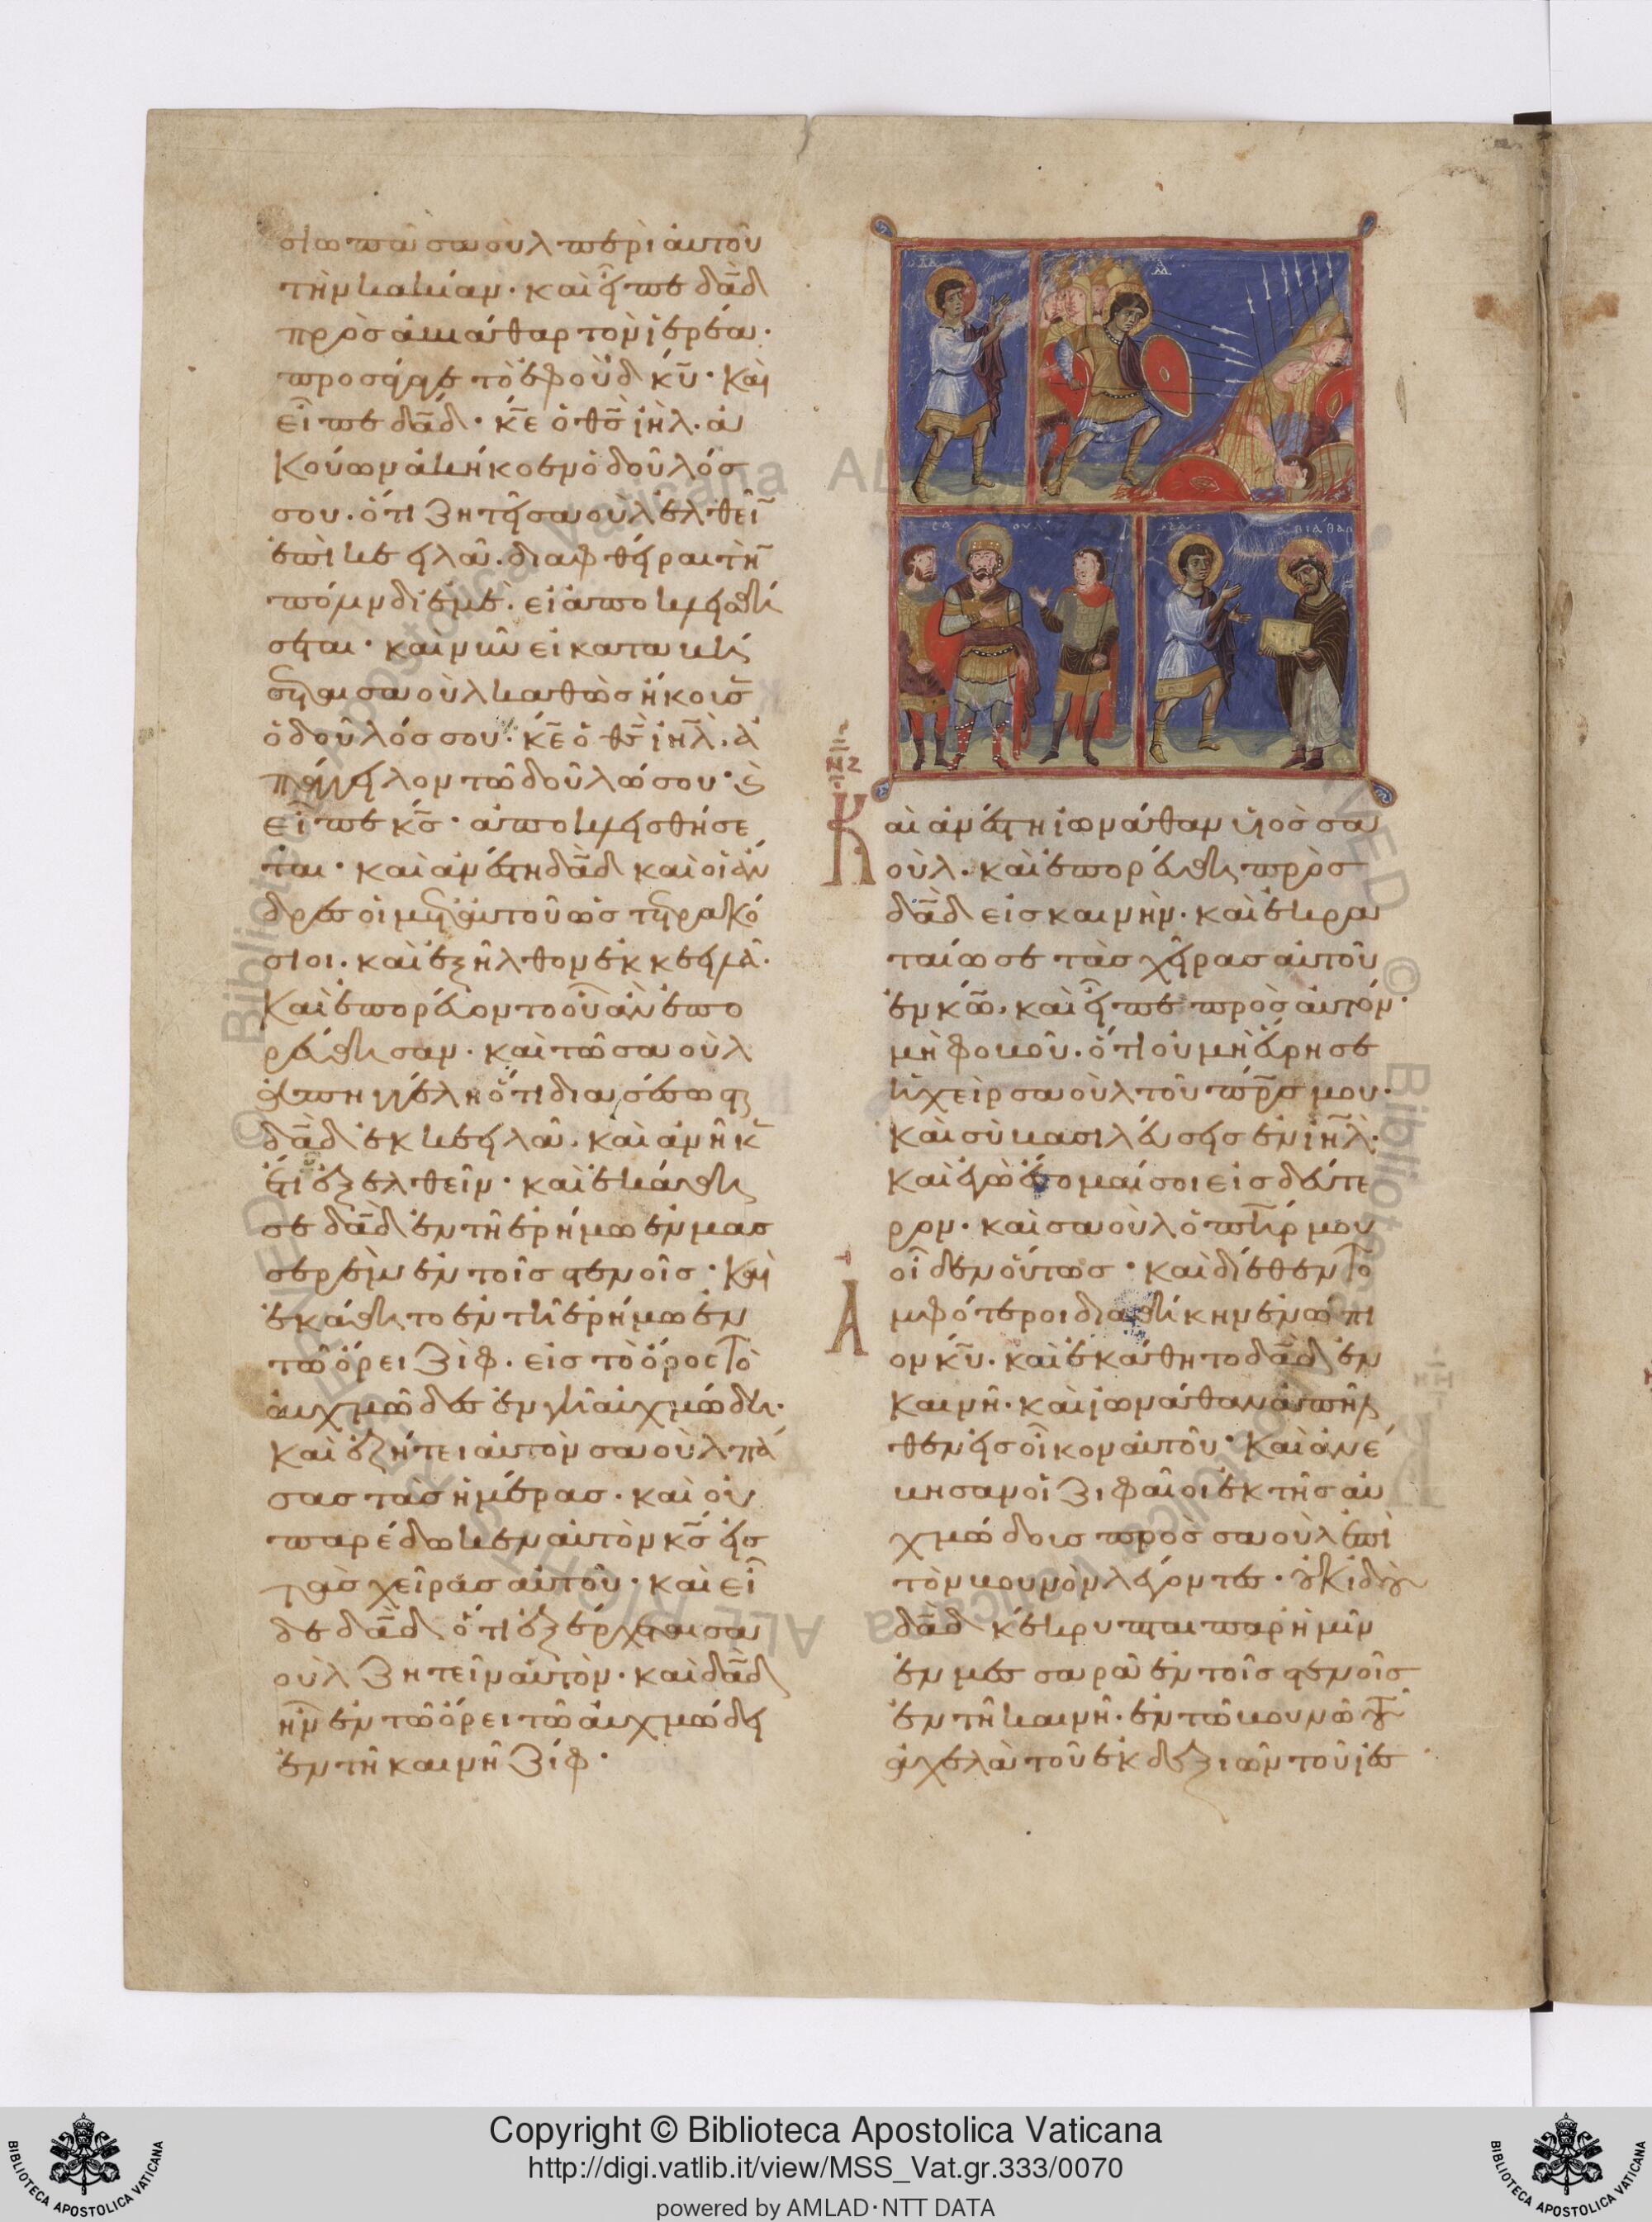 σιωπᾶ σαοὺλ περὶ αὐτοῦ
τὴν κακίαν· καὶ εἶπε δᾱδ
πρὸς ἀβιάθαρ τὸν ἱερέα·
προσάγαγε τὸ ἐφοὺδ κ̄ῡ· καὶ
εἶπε δᾱδ· κ̄ε ὁ θ̄ς ἰη̄λ· ἀ
κούων ἀκήκοεν ὁ δοῦλός
σου· ὅτι ζητεῖ σαοὺλ ἐλθεῖν
ἐπὶ κεειλᾶ· διαφθεῖραι τὴν
πόλιν δι' ἐμέ· εἰ ἀποκλεισθή
σεται· καὶ νῦν εἰ καταβή
σεται σαοὺλ καθὼς ἤκουσεν
ὁ δοῦλός σου· κ̄ε ὁ θ̄ς ἰη̄λ· ἀ
πάγγειλον τῶ δούλω σου· καὶ
εἶπε κ̄ς· ἀποκλεισθήσε
ται· καὶ ἀνέστη δᾱδ καὶ οἱ ἄν
δρες οἱ μετ' αὐτοῦ ὡς τετρακό
σιοι· καὶ ἐξῆλθον ἐκ κεειλᾶ·
Καὶ ἐπορεύοντο οὗ ἂν ἐπο
ρεύθησαν· καὶ τῶ σαοὺλ
ἀπηγγέλη ὅτι διασέσωται
δᾱδ ἐκ κεειλᾶ· καὶ ἀνῆκεν
ἔτι ἐξελθεῖν· καὶ ἐκάθη
σε δᾱδ ἐν τῆ ἐρήμω ἐν μασ
σερὲμ ἐν τοῖς στενοῖς· Καὶ
ἐκάθητο ἐν τῆ ἐρήμω ἐν
τῶ ὄρει ζίφ· εἰς τὸ ὄρος τὸ
αὐχμῶδες ἐν γῆ αὐχμώδη·
Καὶ ἐζήτει αὐτὸν σαοὺλ πά
σας τὰς ἡμέρας· καὶ οὐ
παρέδωκεν αὐτὸν κ̄ς εἰς
τὰς χεῖρας αὐτοῦ· καὶ εἶ
δε δᾱδ ὅτι ἐξέρχεται σα
οὺλ ζητεῖν αὐτὸν· καὶ δᾱδ
ἦν ἐν τῶ ὄρει τῶ αὐχμώδει
ἐν τῆ καινῆ ζίφ·
ΝΖ
Καὶ ἀνέστη ἰωνάθαν υἱὸς σα
οὺλ· καὶ ἐπορεύθη πρὸς
δᾱδ εἰς καινὴν· καὶ ἐκρα
ταίωσε τὰς χεῖρας αὐτοῦ
ἐν κ̄ω· καὶ εἶπε πρὸς αὐτόν·
μὴ φοβοῦ· ὅτι οὐ μὴ εὕρη σε
ἡ χεὶρ σαοὺλ τοῦ π̄ρ̄ς μου·
Καὶ σὺ βασιλεύσεις ἐν ἰη̄λ·
Καὶ ἐγὼ ἔσομαί σοι εἰς δεύτε
ρον· καὶ σαοὺλ ὁ π̄η̄ρ μου
οἶδεν οὕτως· καὶ διέθεντο
Ἀμφότεροι διαθήκην ἐνώπι
ον κ̄ῡ· καὶ ἐκάθητο δᾱδ ἐν
καινῆ· καὶ ἰωνάθαν ἀπῆλ
θεν εἰς οἶκον αὐτοῦ· Καὶ ἀνέ
βησαν οἱ ζιφαῖοι ἐκ τῆς αὐ
χμώδους πρὸς σαοὺλ ἐπὶ
τὸν βουνὸν λέγοντες· οὐκ ἰδοὺ
δᾱδ κέκρυπται παρ' ἡμῖν
ἐν μεσσαρᾶ ἐν τοῖς στενοῖς
ἐν τῆ καινῆ· ἐν τῶ βουνῶ τοῦ
ἀχελὰ τοῦ ἐκ δεξιῶν τοῦ ἰεσ
Copyright © Biblioteca Apostolica Vaticana
http://digi.vatlib.it/view/MSS_Vat.gr.333/0070
powered by AMLAD·NTT DATA